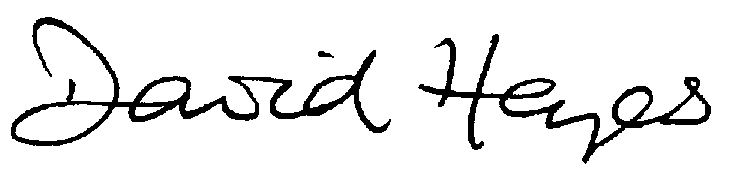 David Heyes